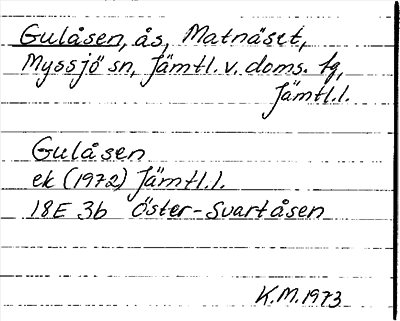 Gulåsen, ås, Matnäset,
Myssjö sn, Jämtl. v. doms. tg,
Jämtl.l.
Gulåsen
ek (1972) Jämtl.l.
18E 3b Öster-Svartåsen
K.M. 1973